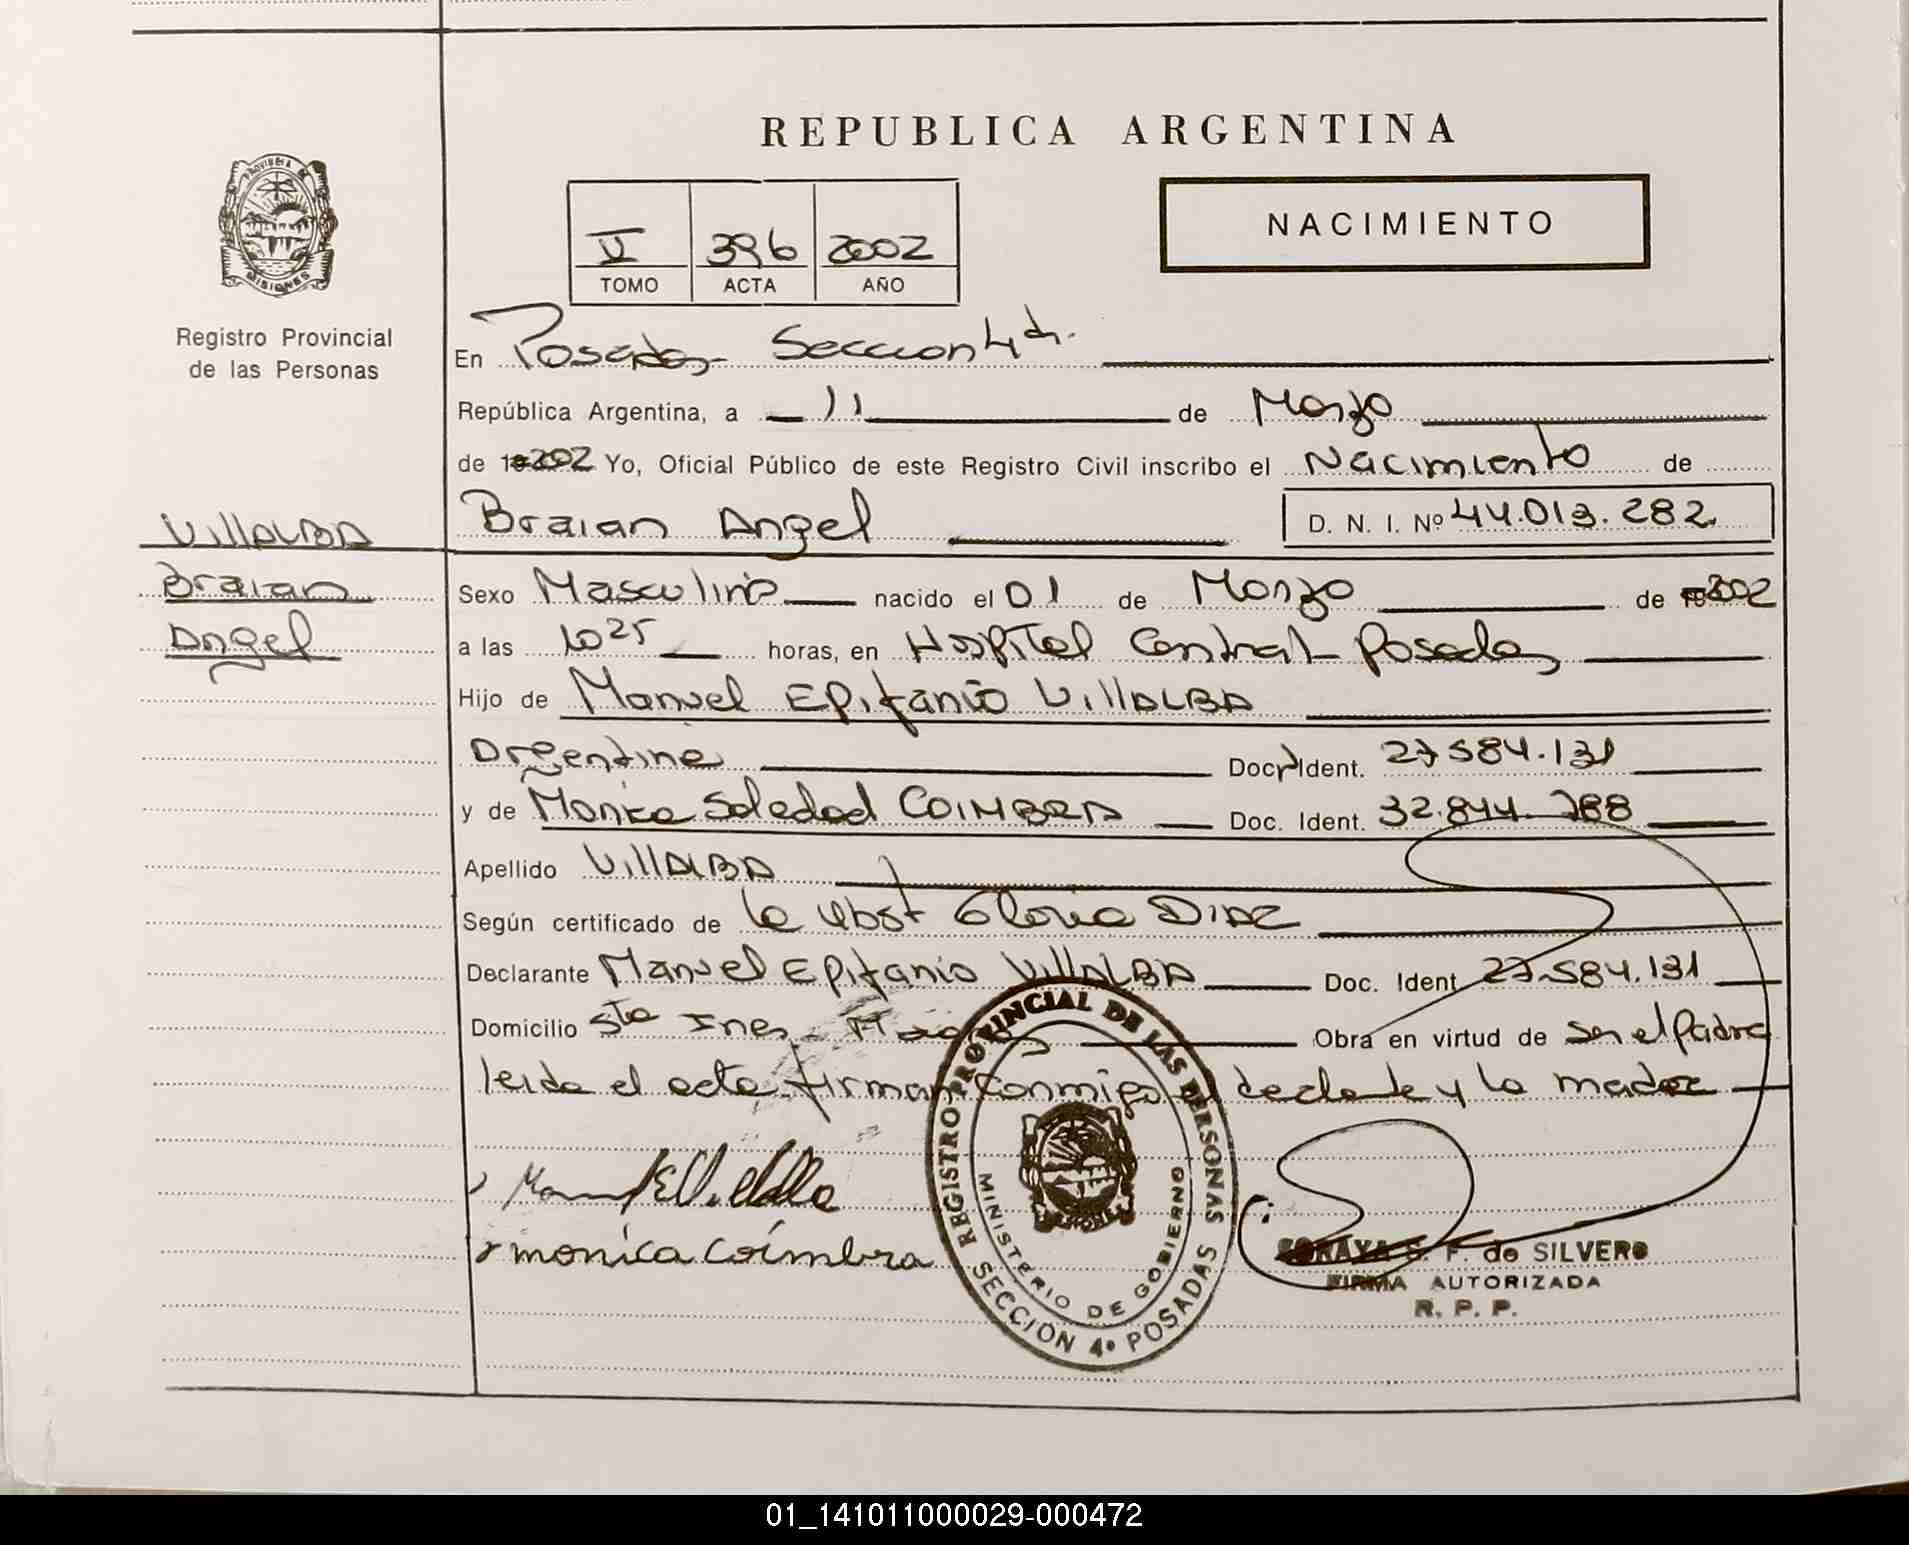 REPUBLICA ARGENTINA
PROVINCIA DE
MISIONES
Registro Provincial
de las Personas
V 396 2002
TOMO ACTA AÑO
NACIMIENTO
En Posadas Seccion 4ta.
República Argentina, a 11 de Marzo
de 2002 Yo, Oficial Público de este Registro Civil inscribo el Nacimiento de
Braian Angel D. N. I. Nº 44.013.282
VILLALBA
Braian
Angel
Sexo Masculino nacido el 01 de Marzo de 2002
a las 10 25 horas, en Hospital Central Posadas
Hijo de Manuel Epifanio VILLALBA
Argentina Doc. Ident. 27584.131
y de Monica Soledad COIMBRA Doc. Ident. 32.844.788
Apellido VILLALBA
Según certificado de la obst Gloria DIAZ
Declarante Manuel Epifanio VILLALBA Doc. Ident 27.584.131
Domicilio Sta Ines Obra en virtud de ser el padre
leida el acta firman conmigo el declarante y la madre
monica coimbra
REGISTRO PROVINCIAL DE LAS PERSONAS
MINISTERIO DE GOBIERNO
SECCIÓN 4º POSADAS
SORAYA S. F. de SILVERO
FIRMA AUTORIZADA
R. P. P.
01_141011000029-000472